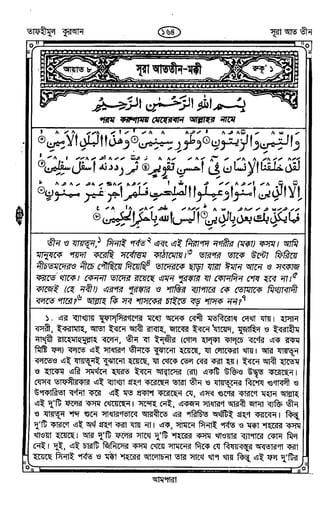 তাফহীমুল কুরআন ১৬৪ সূরা আত তীন
আয়াত ৮ সূরা আততীন-মক্কী রুকু ১
بِسْمِ اللّٰهِ الرَّحْمٰنِ الرَّحِيْمِ
পরম করুণাময় মেহেরবান আল্লাহর নামে
وَالتِّيْنِ وَالزَّيْتُوْنِ ۙ وَطُوْرِ سِيْنِيْنَ ۙ وَهٰذَا الْبَلَدِ الْاَمِيْنِ ۙ
لَقَدْ خَلَقْنَا الْاِنْسَانَ فِيْ اَحْسَنِ تَقْوِيْمٍ ۙ ثُمَّ رَدَدْنٰهُ اَسْفَلَ سٰفِلِيْنَ ۙ
اِلَّا الَّذِيْنَ اٰمَنُوْا وَعَمِلُوا الصّٰلِحٰتِ فَلَهُمْ اَجْرٌ غَيْرُ مَمْنُوْنٍ ۙ
فَمَا يُكَذِّبُكَ بَعْدُ بِالدِّيْنِ ۙ اَلَيْسَ اللّٰهُ بِاَحْكَمِ الْحٰكِمِيْنَ
তীন ও যায়তুন,১ সিনাই পর্বত২ এবং এই নিরাপদ নগরীর (মক্কা) কসম। আমি
মানুষকে পয়দা করেছি সর্বোত্তম কাঠামোয়।৩ তারপর তাকে উল্টো ফিরিয়ে
নীচতমদেরও নীচে পৌঁছিয়ে দিয়েছি৪ তাদেরকে ছাড়া যারা ঈমান আনে ও সৎকাজ
করতে থাকে। কেননা তাদের রয়েছে এমন পুরস্কার যা কোনদিন শেষ হবে না।৫
কাজেই (হে নবী!) এরপর পুরস্কার ও শাস্তির ব্যাপারে কে তোমাকে মিথ্যাবাদী
বলতে পারে?৬ আল্লাহ কি সব শাসকের চাইতে বড় শাসক নন?৭
১. এর ব্যাখ্যায় মুফাস্‌সিরগণের মধ্যে অনেক বেশী মতবিরোধ দেখা যায়। হাসান
বসরী, ইকরামাহ, আতা ইবনে আবী রাবাহ, জাবের ইবনে যায়েদ, মুজাহিদ ও ইবরাহীম
নাখয়ী রাহেমাহুমুল্লাহ বলেন, তীন বা ইনজীর (গোল হালকা কালচে বর্ণের এক রকম
মিষ্টি ফল) বলতে এই সাধারণ তীনকে বুঝানো হয়েছে, যা লোকেরা খায়। আর যায়তুন
বলতেও এই যায়তুনই বুঝানো হয়েছে, যা থেকে তেল বের করা হয়। ইবনে আবী হাতেম
ও হাকেম এরি সমর্থনে হযরত ইবনে আব্বাসের (রা) একটি উক্তিও উদ্ধৃত করেছেন।
যেসব তাফসীরকার এই ব্যাখ্যা গ্রহণ করেছেন তারা তীন ও যায়তুনের বিশেষ গুণাবলী ও
উপকারিতা বর্ণনা করে এই মত প্রকাশ করেছেন যে, এসব গুণের কারণে মহান আল্লাহ
এই দু'টি ফলের কসম খেয়েছেন। সন্দেহ নেই, একজন সাধারণ আরবী জানা ব্যক্তি তীন
ও যায়তুন শব্দ শুনে সাধারণভাবে আরবীতে এর পরিচিত অর্থটিই গ্রহণ করবেন। কিন্তু
দু'টি কারণে এই অর্থ গ্রহণ করা যায় না। এক, সামনে সিনাই পর্বত ও মক্কা শহরের কসম
খাওয়া হয়েছে। আর দু'টি ফলের সাথে দু'টি শহরের কসম খাওয়ার ব্যাপারে কোন মিল
নেই। দুই, এই চারটি জিনিসের কসম খেয়ে সামনের দিকে যে বিষয়বস্তুর অবতারণা করা
হয়েছে সিনাই পর্বত ও মক্কা শহরের আলোচনা তার সাথে খাপ খায় কিন্তু এই ফল দু'টির
আমপারা